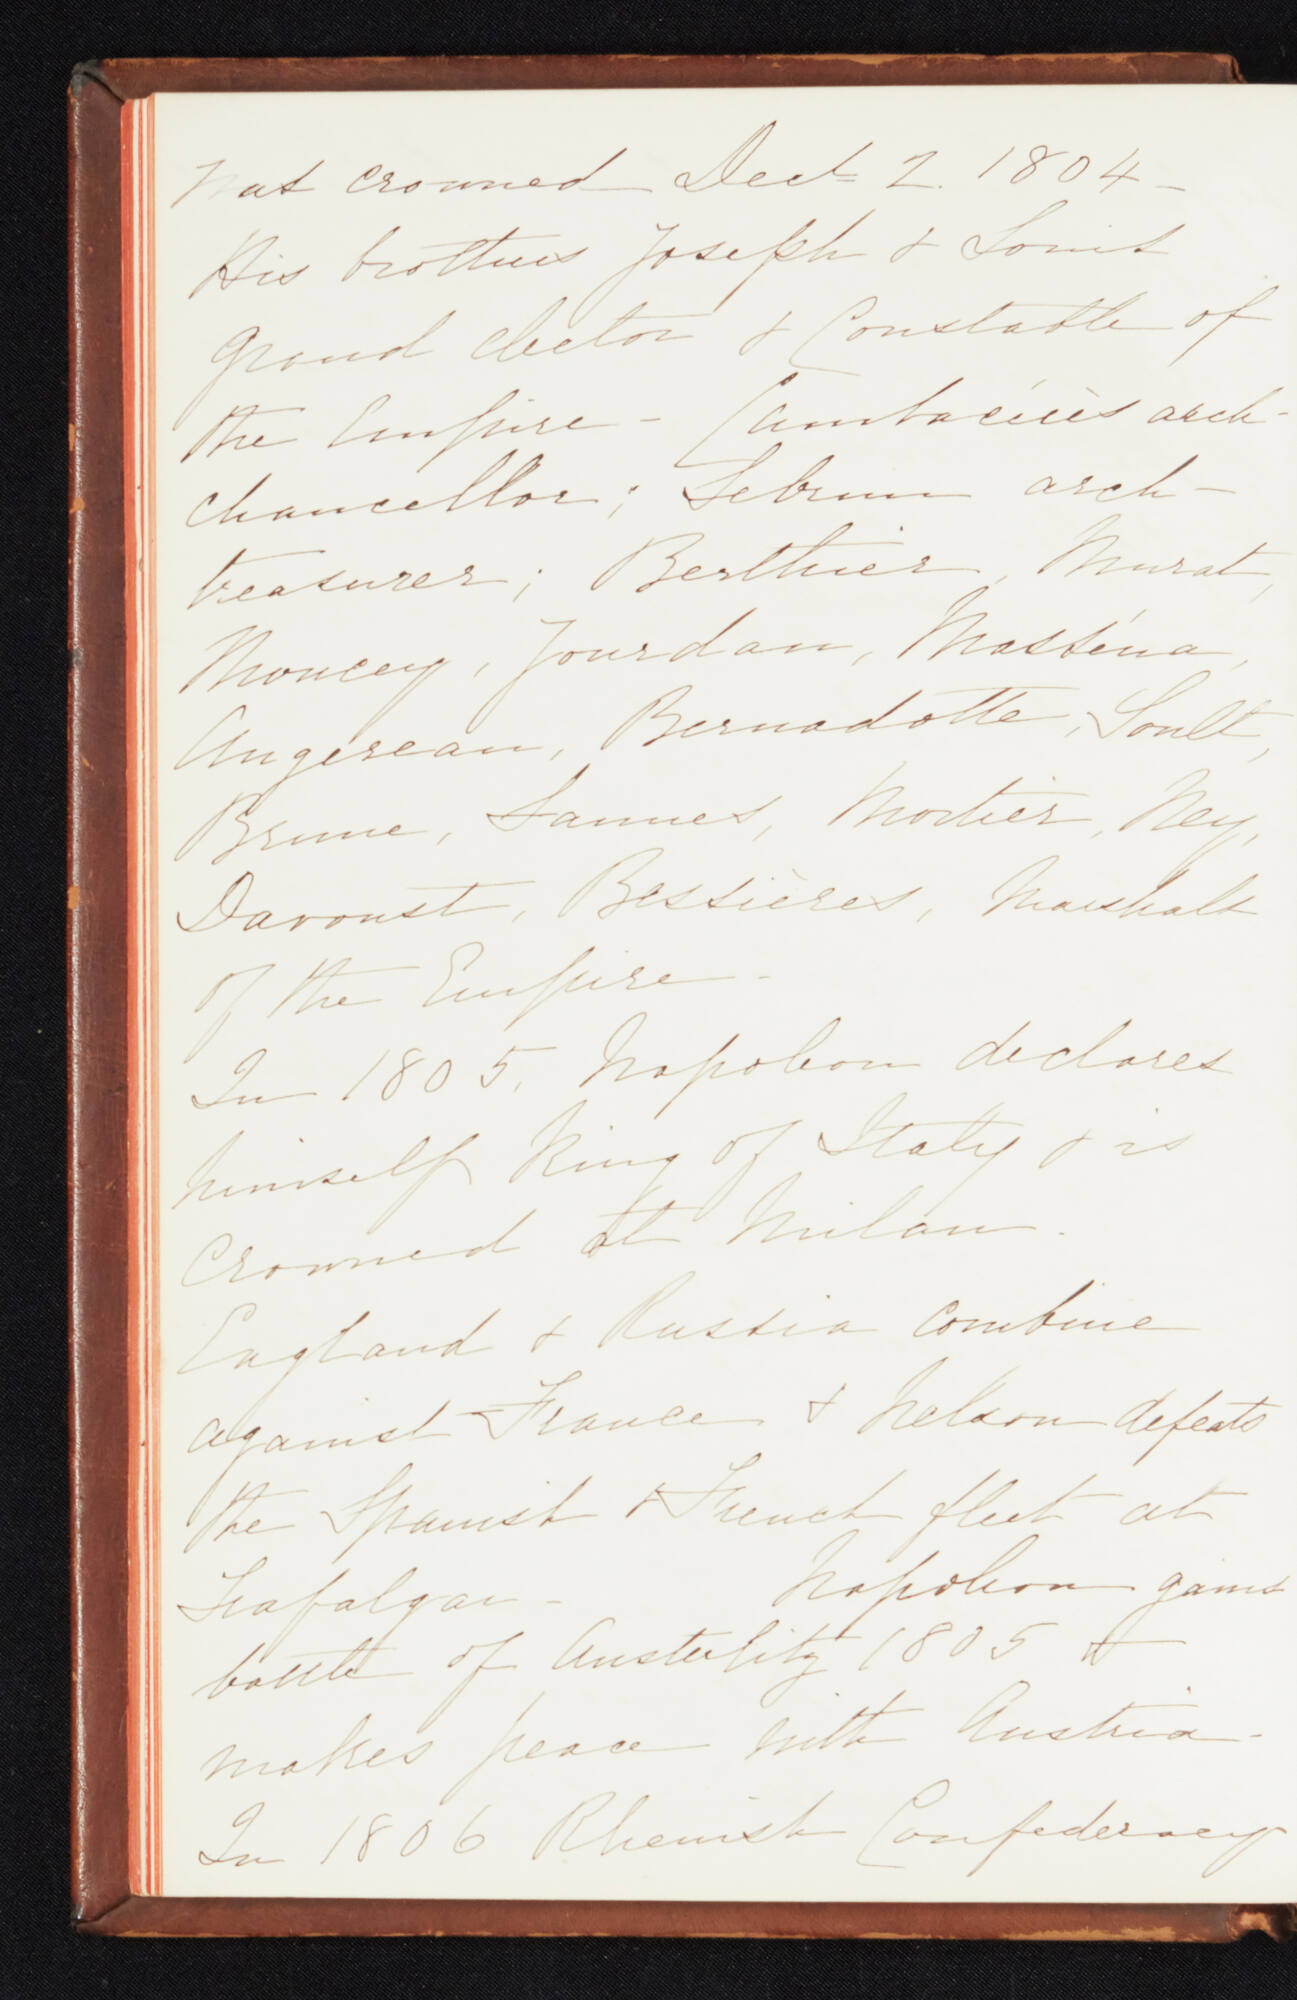 was crowned Dect 2. 1804 -
His brothers Joseph & Louis
grand elector & Constable of
the Empire - Cambacérès arch-
chancellor; Lebrun arch-
treasurer; Berthier, Murat,
Moncey, Jourdan, Masséna,
Augereau, Bernadotte, Soult,
Brune, Lannes, Mortier, Ney,
Davoust, Bessières, Marshals
of the Empire -
In 1805, Napoleon declares
himself King of Italy & is
crowned at Milan.
England & Russia combine
against France & Nelson defeats
the Spanish & French fleet at
Trafalgar - Napoleon gains
battle of Austerlitz 1805 &
makes peace with Austria -
In 1806 Rhenish Confederacy